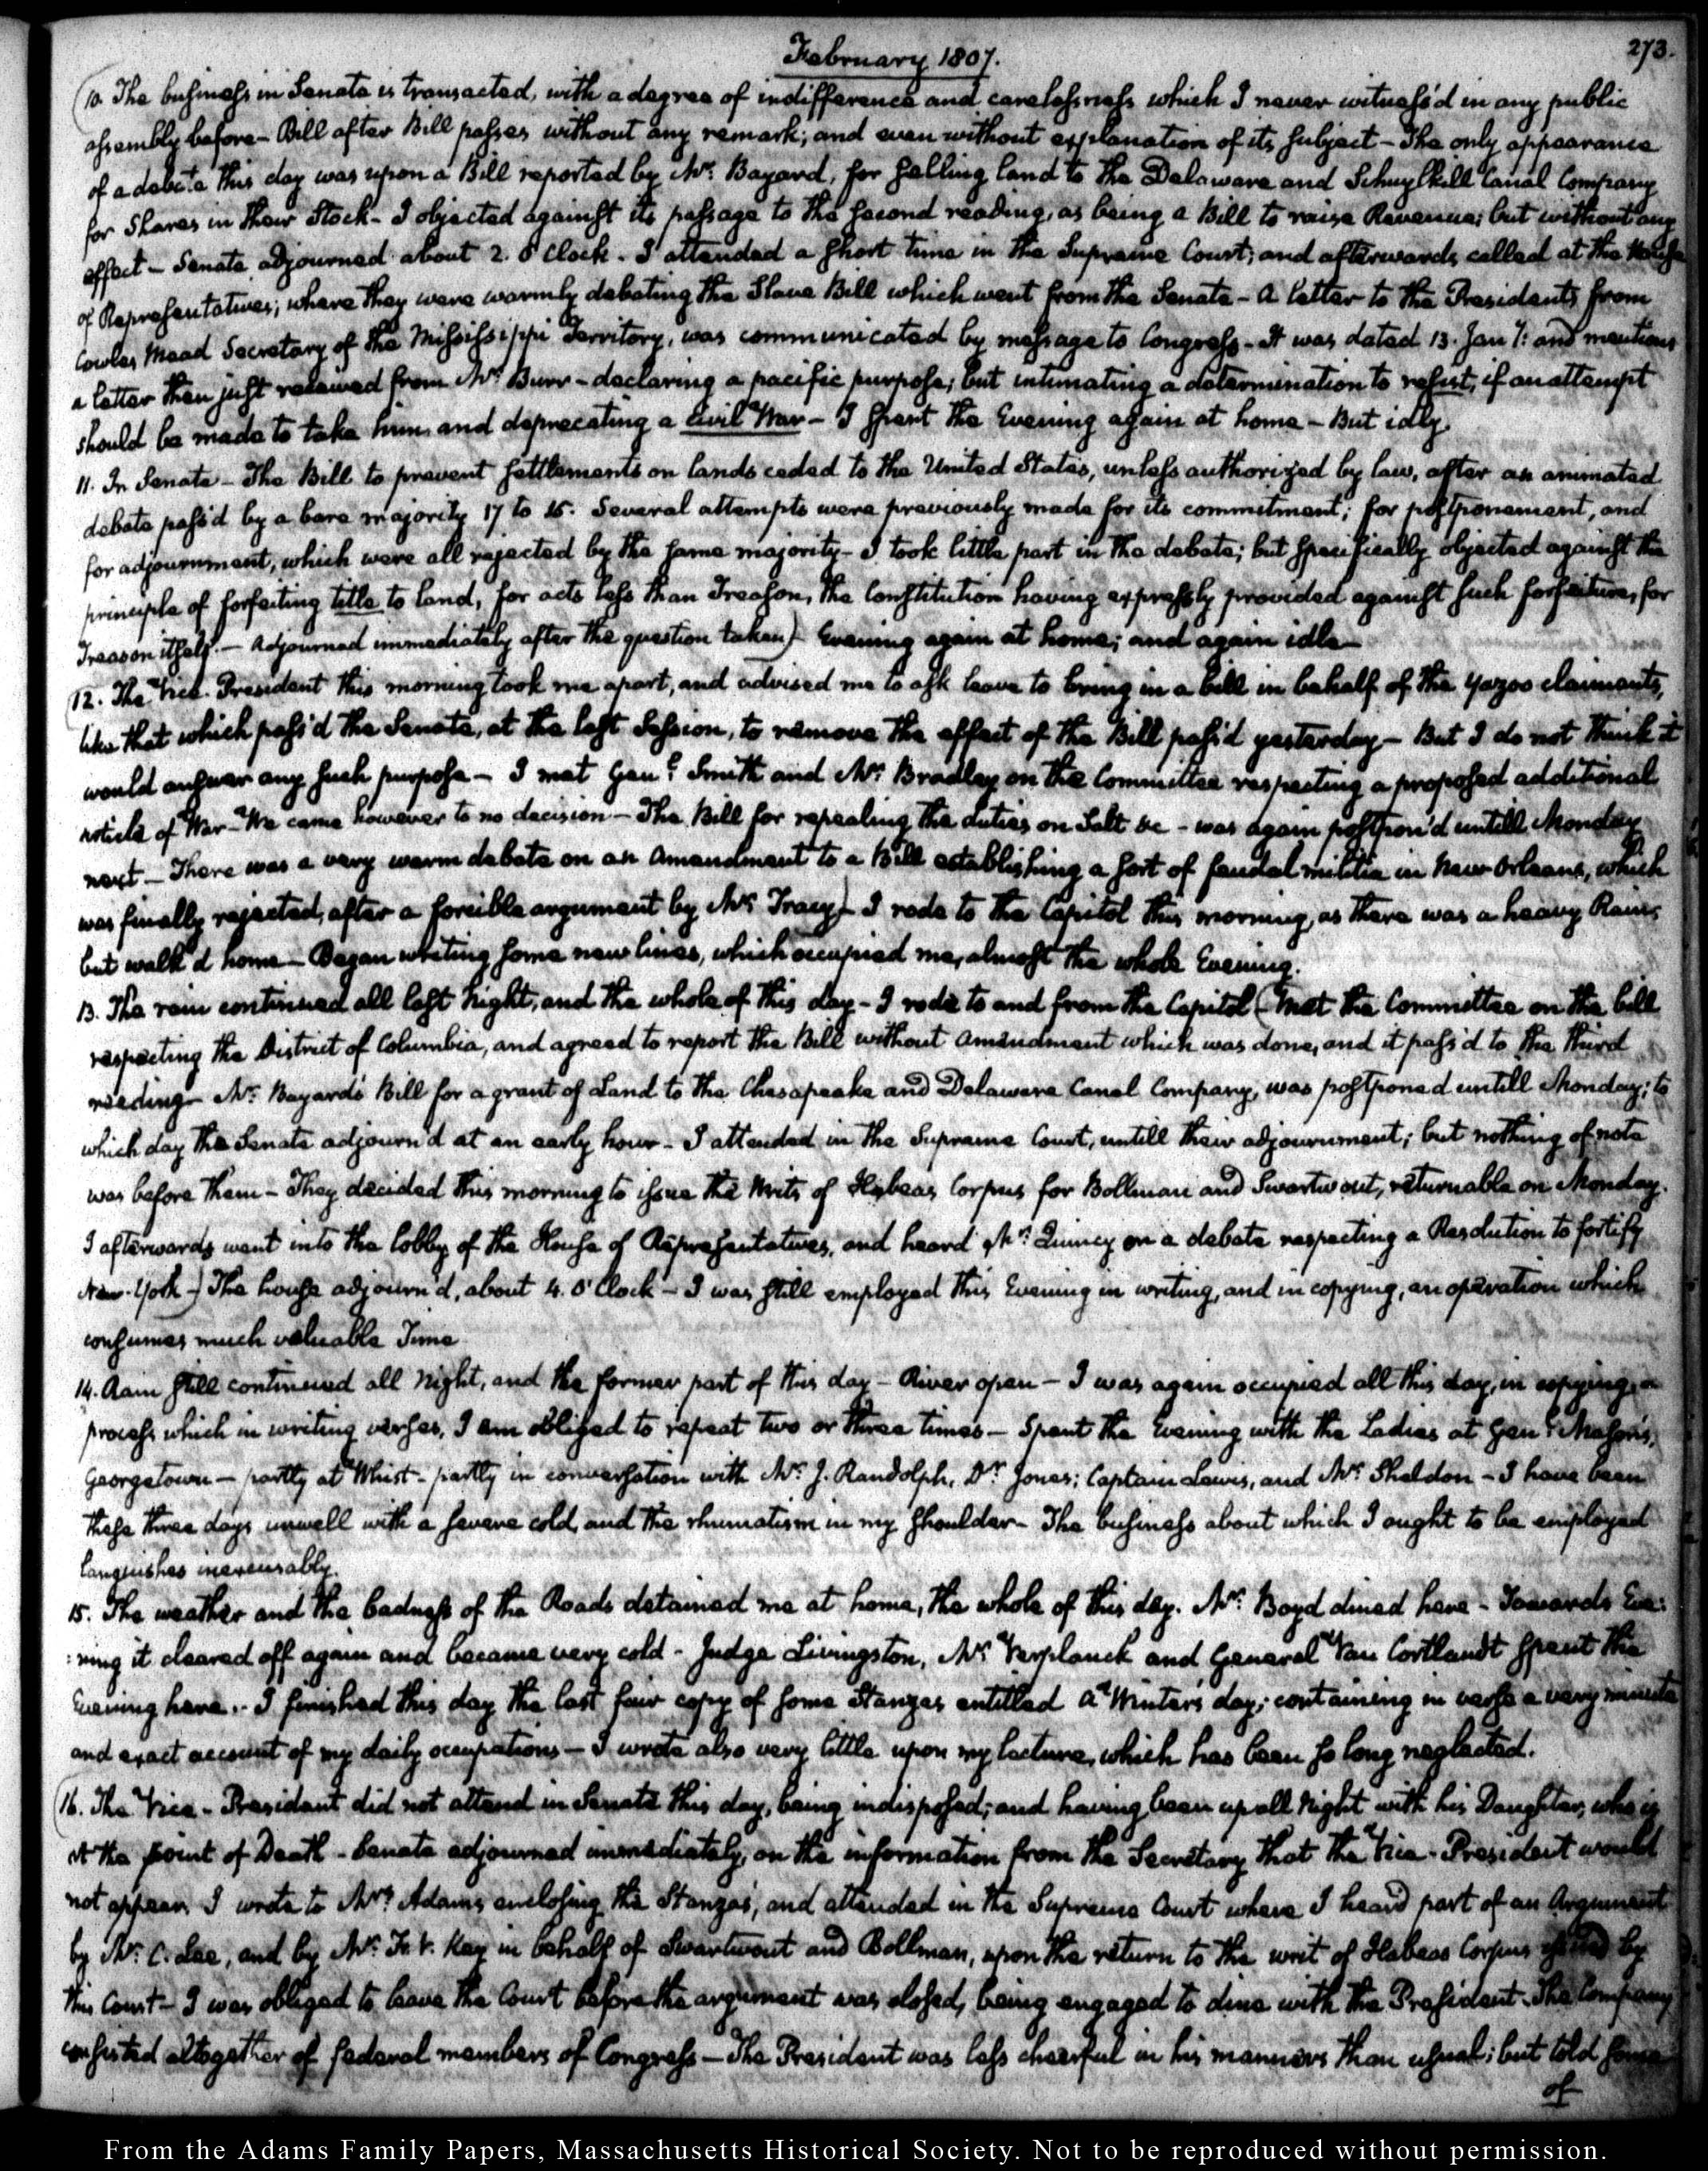 February 1807.
273.
10. The business in Senate is transacted, with a degree of indifference and carelessness which I never witness'd in any public
assembly before - Bill after Bill passes without any remark; and even without explanation of its subject - The only appearance
of a debate this day was upon a Bill reported by Mr. Bayard, for selling land to the Delaware and Schuylkill Canal Company
for Shares in their Stock - I objected against its passage to the second reading, as being a Bill to raise Revenue; but without any
effect - Senate adjourned about 2. O'Clock. I attended a short time in the Supreme Court; and afterwards called at the House
of Representatives; where they were warmly debating the Slave Bill which went from the Senate - A letter to the Presidents from
Cowles Mead Secretary of the Mississippi Territory, was communicated by message to Congress - It was dated 13. Jany: and mentions
a letter then just received from Mr. Burr - declaring a pacific purpose; but intimating a determination to resist, if an attempt
should be made to take him, and deprecating a Civil War - I spent the Evening again at home - But idly.
11. In Senate - The Bill to prevent settlements on lands ceded to the United States, unless authorized by law, after an animated
debate pass'd by a bare majority 17 to 15. Several attempts were previously made for its commitment; for postponement, and
for adjournment, which were all rejected by the same majority - I took little part in the debate; but specifically objected against the
principle of forfeiting title to land, for acts less than Treason, the Constitution having expressly provided against such forfeiture, for
Treason itself. - Adjourned immediately after the question taken) Evening again at home; and again idle -
(12. The Vice-President this morning took me apart, and advised me to ask leave to bring in a bill in behalf of the Yazoo claimants,
like that which pass'd the Senate, at the last Session, to remove the effect of the Bill pass'd yesterday - But I do not think it
would answer any such purpose - I met Genl. Smith and Mr. Bradley on the Committee respecting a proposed additional
article of War - We came however to no decision - The Bill for repealing the duties on Salt &c - was again postpon'd untill Monday
next - There was a very warm debate on an Amendment to a Bill establishing a sort of feudal militia in New Orleans, which
was finally rejected, after a forcible argument by Mr. Tracy) I rode to the Capitol this morning, as there was a heavy Rain;
but walk'd home - Began writing some new lines, which occupied me, almost the whole Evening.
13. The rain continued all last Night, and the whole of this day - I rode to and from the Capitol (Met the Committee on the bill
respecting the District of Columbia, and agreed to report the Bill without Amendment which was done, and it pass'd to the third
reading - Mr. Bayard's Bill for a grant of Land to the Chesapeake and Delaware Canal Company, was postponed untill Monday; to
which day the Senate adjourn'd at an early hour - I attended in the Supreme Court, untill their adjournment; but nothing of note
was before them - They decided this morning to issue the Writs of Habeas Corpus for Bollman and Swartwout, returnable on Monday.
I afterwards went into the lobby of the House of Representatives, and heard Mr. Quincy on a debate respecting a Resolution to fortify
New-York -) The house adjourn'd, about 4. O'Clock - I was still employed this Evening in writing, and in copying, an operation which
consumes much valuable Time
14. Rain still continued all Night, and the former part of this day - River open - I was again occupied all this day, in copying, a
process which in writing verses, I am obliged to repeat two or three times - Spent the Evening with the Ladies at Genl. Mason's,
Georgetown - partly at Whist - partly in conversation with Mr. J. Randolph, Dr. Jones; Captain Lewis, and Mr. Sheldon - I have been
these three days unwell with a severe cold, and the rhumatism in my shoulder - The business about which I ought to be employed
languishes inexcusably.
15. The weather and the badness of the Roads detained me at home, the whole of this day. Mr. Boyd dined here - Towards Eve:
:ning it cleared off again and became very cold - Judge Livingston, Mr. Verplanck and General Van Cortlandt spent the
Evening here. - I finished this day the last fair copy of some Stanzas entitled A Winter's day; containing in verse a very minute
and exact account of my daily occupations - I wrote also very little upon my lecture, which has been so long neglected.
(16. The Vice-President did not attend in Senate this day, being indisposed; and having been up all Night with his Daughter, who is
at the point of Death - Senate adjourned immediately, on the information from the Secretary that the Vice-President would
not appear. I wrote to Mrs. Adams enclosing the Stanzas, and attended in the Supreme Court where I heard part of an Argument
by Mr. C. Lee, and by Mr. F. K. Key in behalf of Swartwout and Bollman, upon the return to the writ of Habeas Corpus issued by
this Court - I was obliged to leave the Court before the argument was closed, being engaged to dine with the President. The Company
consisted altogether of federal members of Congress - The President was less cheerful in his manners than usual; but told some
of
From the Adams Family Papers, Massachusetts Historical Society. Not to be reproduced without permission.